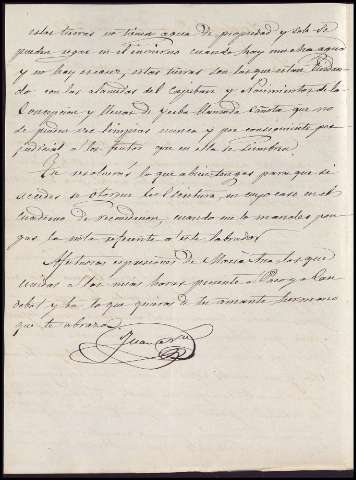 estas tierras no tienen agua de propiedad y solo se
pueden regar en el invierno cuando hay mucha agua
y no hay escasez, estas tierras son las que estan lindan
do con las alamedas del y Nacimientos de la
Concepcion y llenas de yerba llamada Cañota que no
se pueden ver limpias nunca y por consiguiente per
judicial a los frutos que en ella se siembren.
En resolveras lo que a bien tengas para que si
accedes se otorgue la Escritura, en cuyo caso en el
cuaderno de recomiendan, cuando me lo mandes pon
gas la nota referente a este labrador
Afectuosas espresiones de Maria Ana, las que
uniras a las mias haras presente a Paco y a Can
delas, y tu lo que quieras de tu amante hermano
que te abraza
Juan